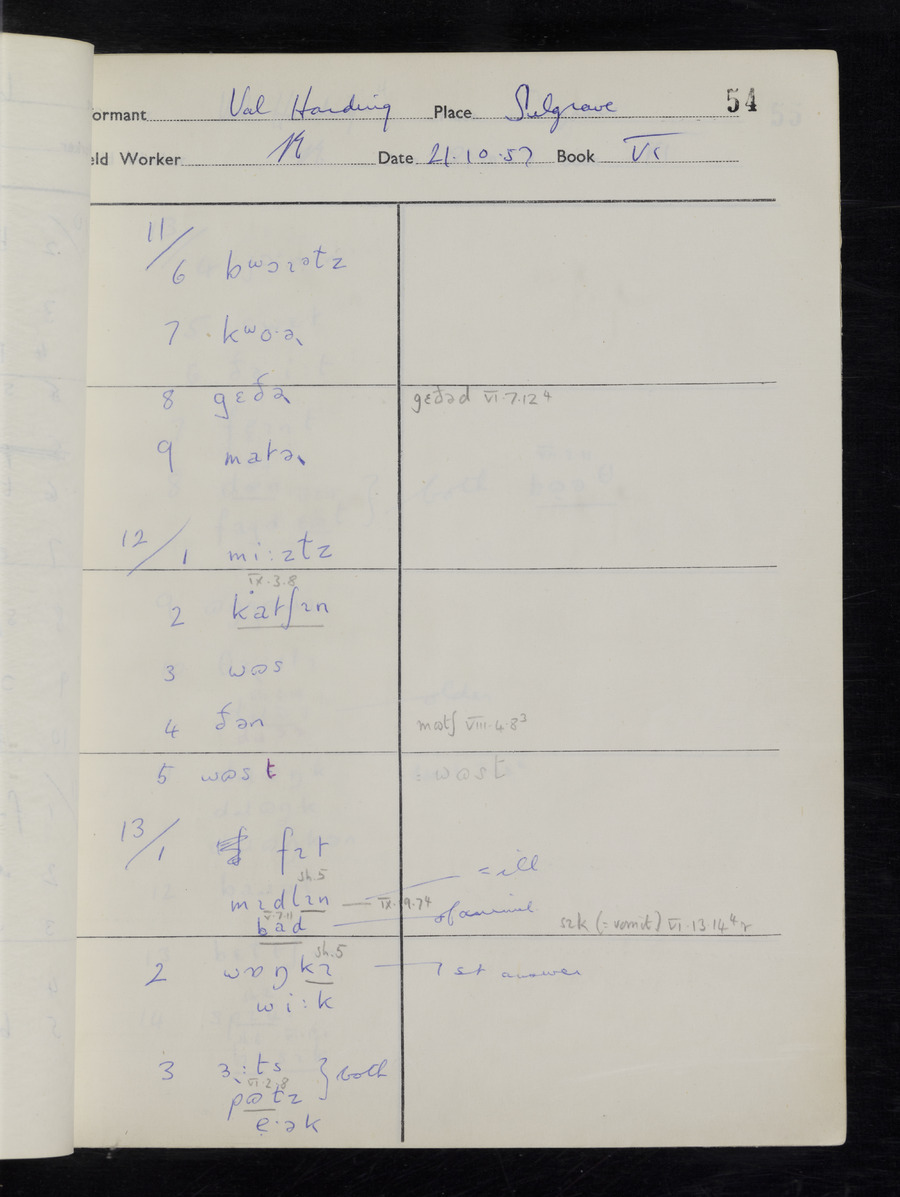 ormant Val Harding Place Sulgrave 54
eld Worker Date 21.10.57 Book VI
11/
6 bʷɔɪətz
7 . kʷo·ə˞
8 gɛðə˞ gɛðəd VI.7.12⁴
9 matə˞
12/1 mi:ztz
IX.3.8
2 katʃɪn
3 wɷs
4 ðən mɷtʃ VIII.4.8³
5 wɷst : wɷst
13/1 fɪt
sh.5 = ill
mɪdlɪn IX.9.7⁴
V.7.11 of animal
bad sɪk (= vomit) VI.13.14⁴ r
sh.5
2 wɒŋkɪ 1st answer
wi:k
3 ɜ:ts } both
VI.2.8
pɷtz
e·ək